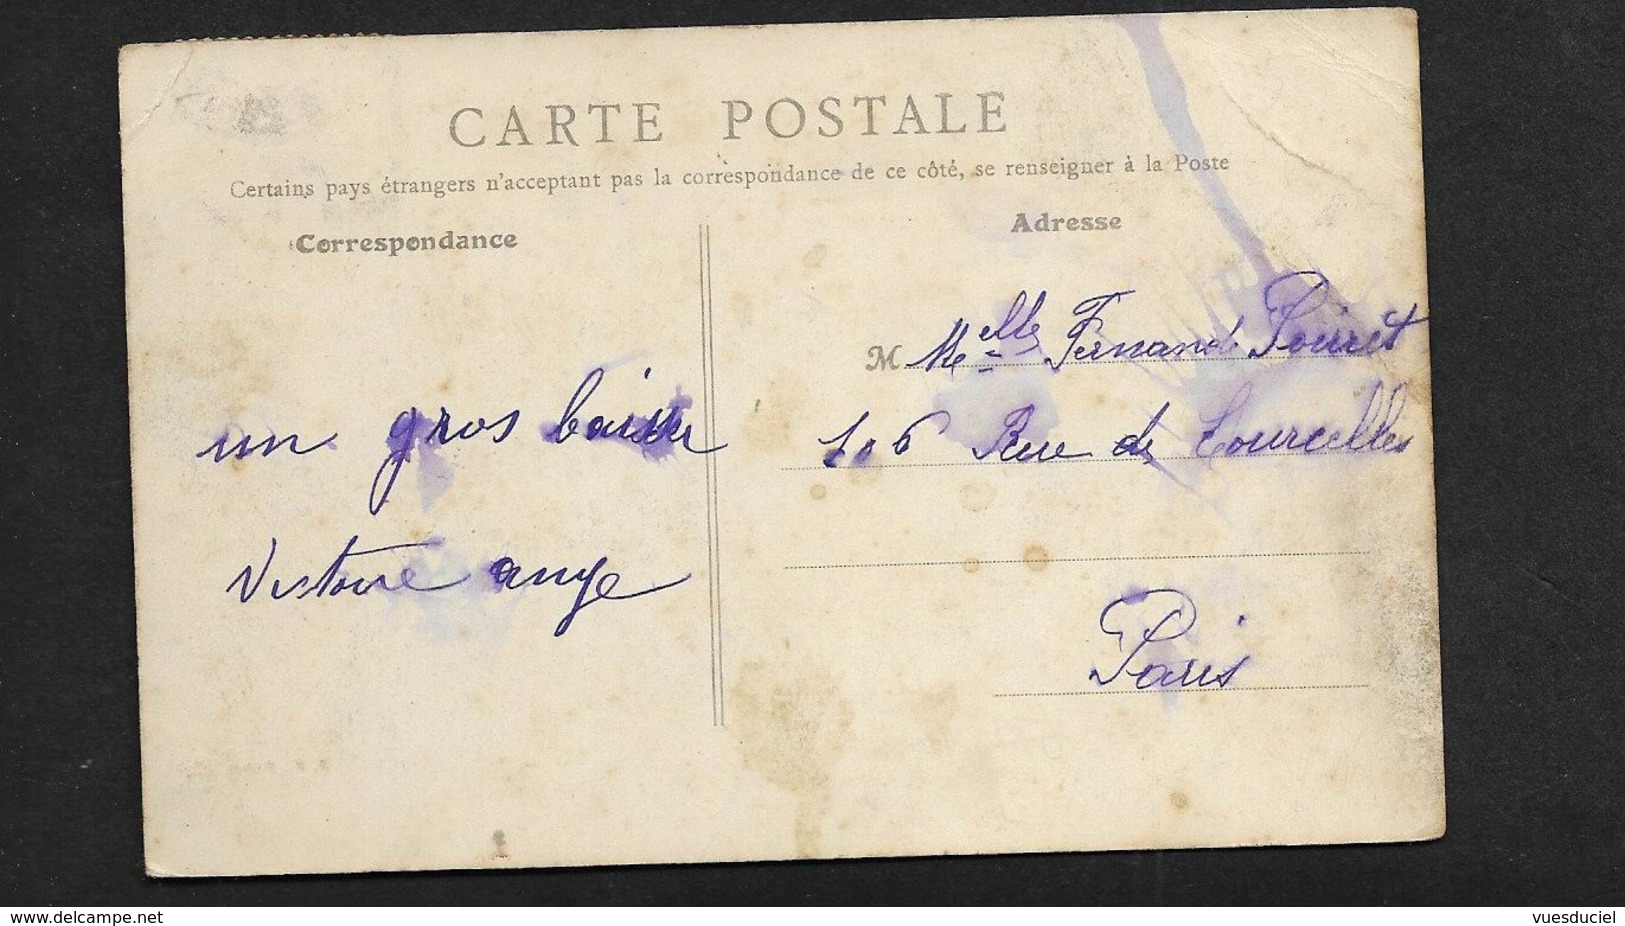 CARTE POSTALE
Certains pays étrangers n'acceptant pas la correspondance de ce côté, se renseigner à la Poste
Correspondance
un gros baiser
Victoire ange
Adresse
M Melle Fernande Poiret
106 Rue de Courcelles
Paris
www.delcampe.net
vuesduciel